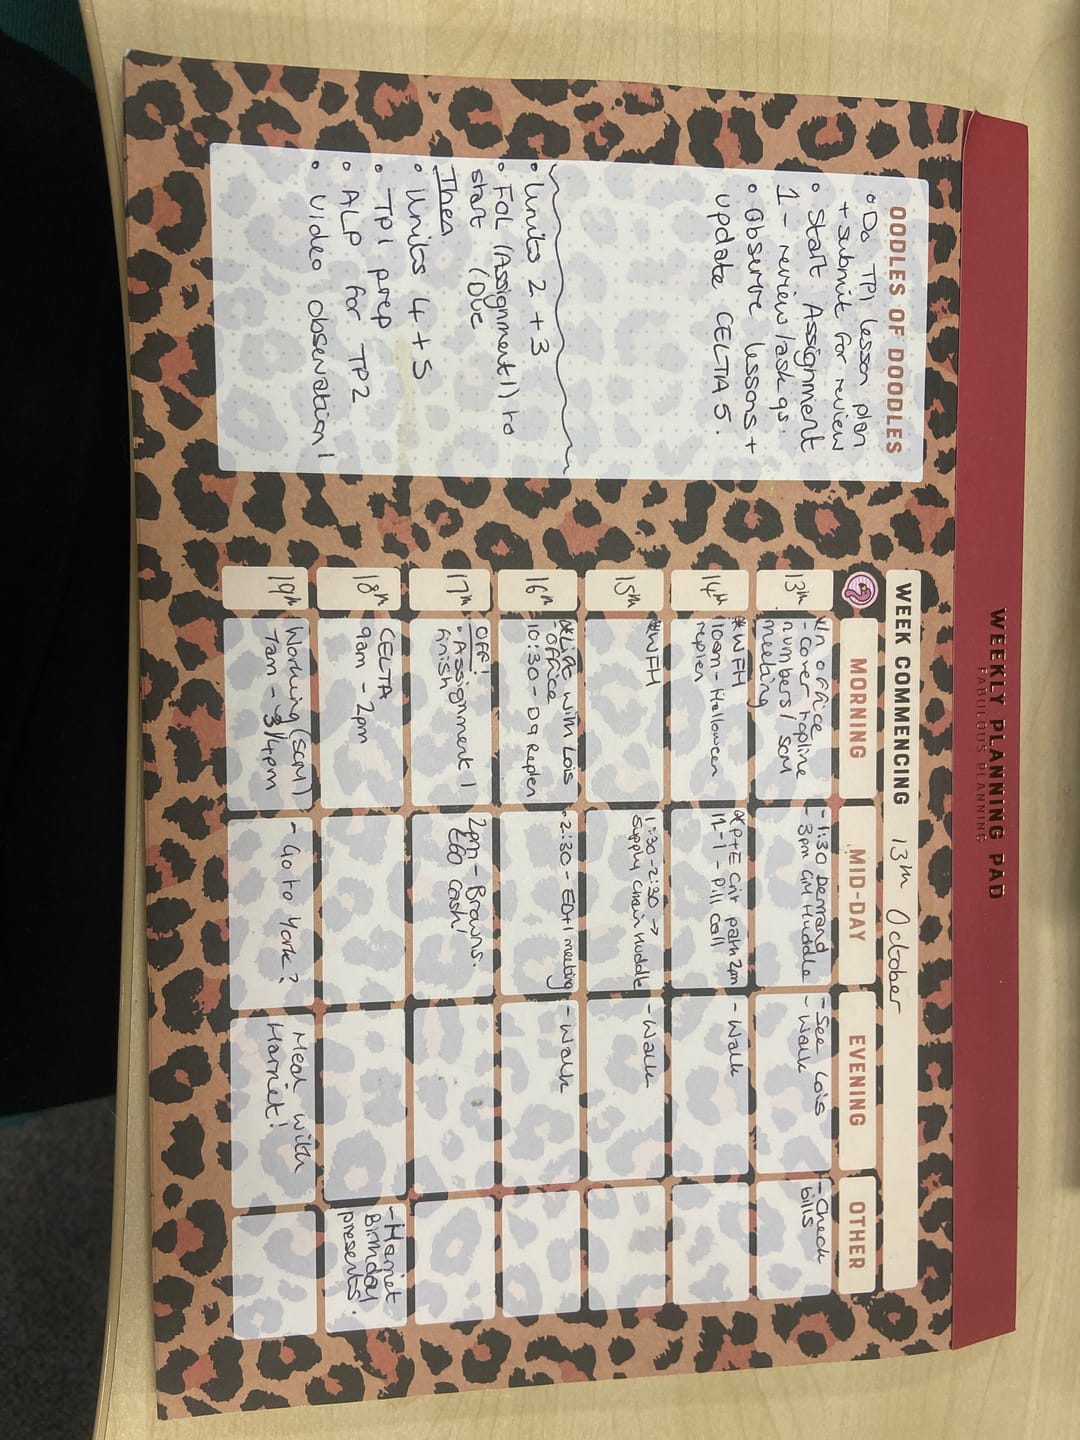 WEEKLY PLANNING PAD
FABULOUS PLANNING
OODLES OF DOODLES
• Do TP1 lesson plan
+ submit for review
• Start Assignment
1 - review/ask qs.
• Observe lessons +
update CELTA 5.
• Units 2 + 3
• FOL (Assignment 1) to
start (DUE
Then
• Units 4 + 5
• TP1 prep
• ALP for TP2
• Video observation 1
WEEK COMMENCING 13th October
MORNING MID-DAY EVENING OTHER
13th
*In office
- Cover topline
numbers / SCM
meeting
- 1:30 Demand
- 3pm GM Huddle
- See Lois
- Walk
- Check
bills
14th
*WFH
10am - Halloween
replen
*P+E Crit path 2pm
12-1 - Pill Call
- Walk
15th
*WFH
1:30-2:30 →
Supply Chain Huddle
- Walk
16th
*Lift with Lois
- Office
10:30 - D9 Replen
- 2:30 - ED+1 meeting
- Walk
17th
OFF!
• Assignment 1
finish
2pm - Browns.
£60 cash!
18th
CELTA
9am - 2pm
- Harriet
Birthday
presents.
19th
Working (SCM1)
7am - 3/4pm
- Go to York?
Meal with
Harriet!